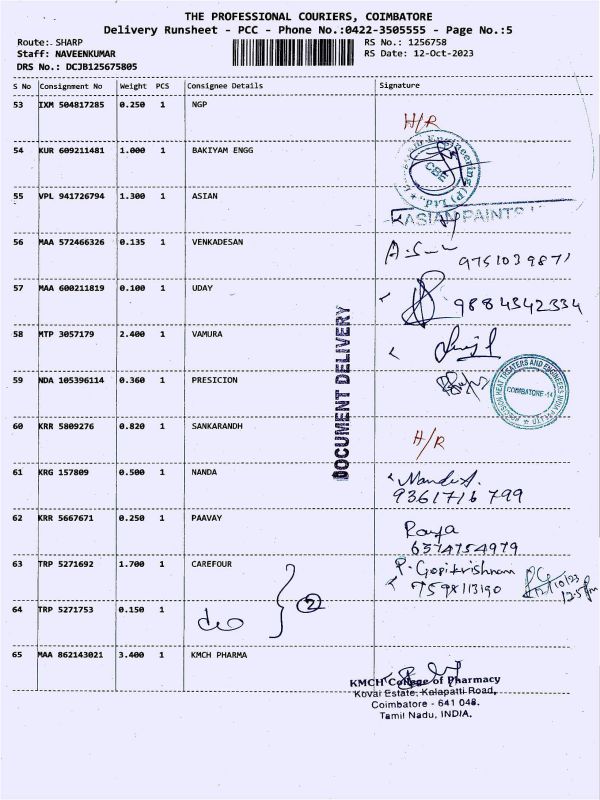 THE PROFESSIONAL COURIERS, COIMBATORE
Delivery Runsheet - PCC - Phone No.:0422-3505555 - Page No.:5
Route: SHARP
RS No.: 1256758
Staff: NAVEENKUMAR
RS Date: 12-Oct-2023
DRS No.: DCJB125675805
S No Consignment No Weight PCS Consignee Details Signature
53 IXM 504817285 0.250 1 NGP
H/R
54 KUR 609211481 1.000 1 BAKIYAM ENGG
CBE
55 VPL 941726794 1.300 1 ASIAN
ASIAN PAINTS
56 MAA 572466326 0.135 1 VENKADESAN
9751039871
57 MAA 600211819 0.100 1 UDAY
9884342334
58 MTP 3057179 2.400 1 VAMURA
DOCUMENT DELIVERY
59 NDA 105396114 0.360 1 PRESICION
COIMBATORE -14
60 KRR 5809276 0.820 1 SANKARANDH
H/R
61 KRG 157809 0.500 1 NANDA
9361716 799
62 KRR 5667671 0.250 1 PAAVAY
6374754979
63 TRP 5271692 1.700 1 CAREFOUR
P. Gopikrishnan
7598113190
64 TRP 5271753 0.150 1
do
2
65 MAA 862143021 3.400 1 KMCH PHARMA
KMCH College of Pharmacy
Kovai Estate, Kalapatti Road,
Coimbatore - 641 048.
Tamil Nadu, INDIA.